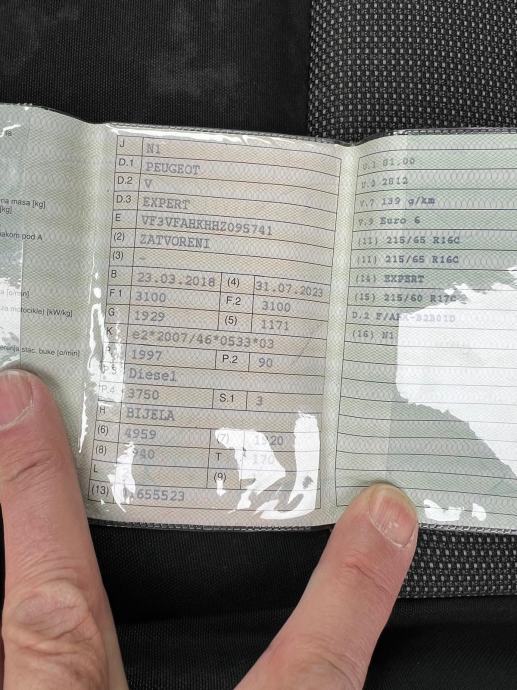 na masa [kg]
[kg]
akom pod A
[o/min]
motocikle) [kW/kg]
stac. buke [o/min]
J N1
D.1 PEUGEOT
D.2 V
D.3 EXPERT
E VF3VFAHKHHZ095741
(2) ZATVORENI
(3) -
B 23.03.2018 (4) 31.07.2023
F.1 3100 F.2 3100
G 1929 (5) 1171
K e2*2007/46*0533*03
1997 P.2 90
Diesel
P.4 3750 S.1 3
H BIJELA
(6) 4959 (7)
(8) T
L (9)
(13)
U.1 81.00
U.2 2812
V.7 139 g/km
V.9 Euro 6
(11) 215/65 R16C
(11) 215/65 R16C
(14) EXPERT
(15) 215/60 R17C
D.2
(16) N1